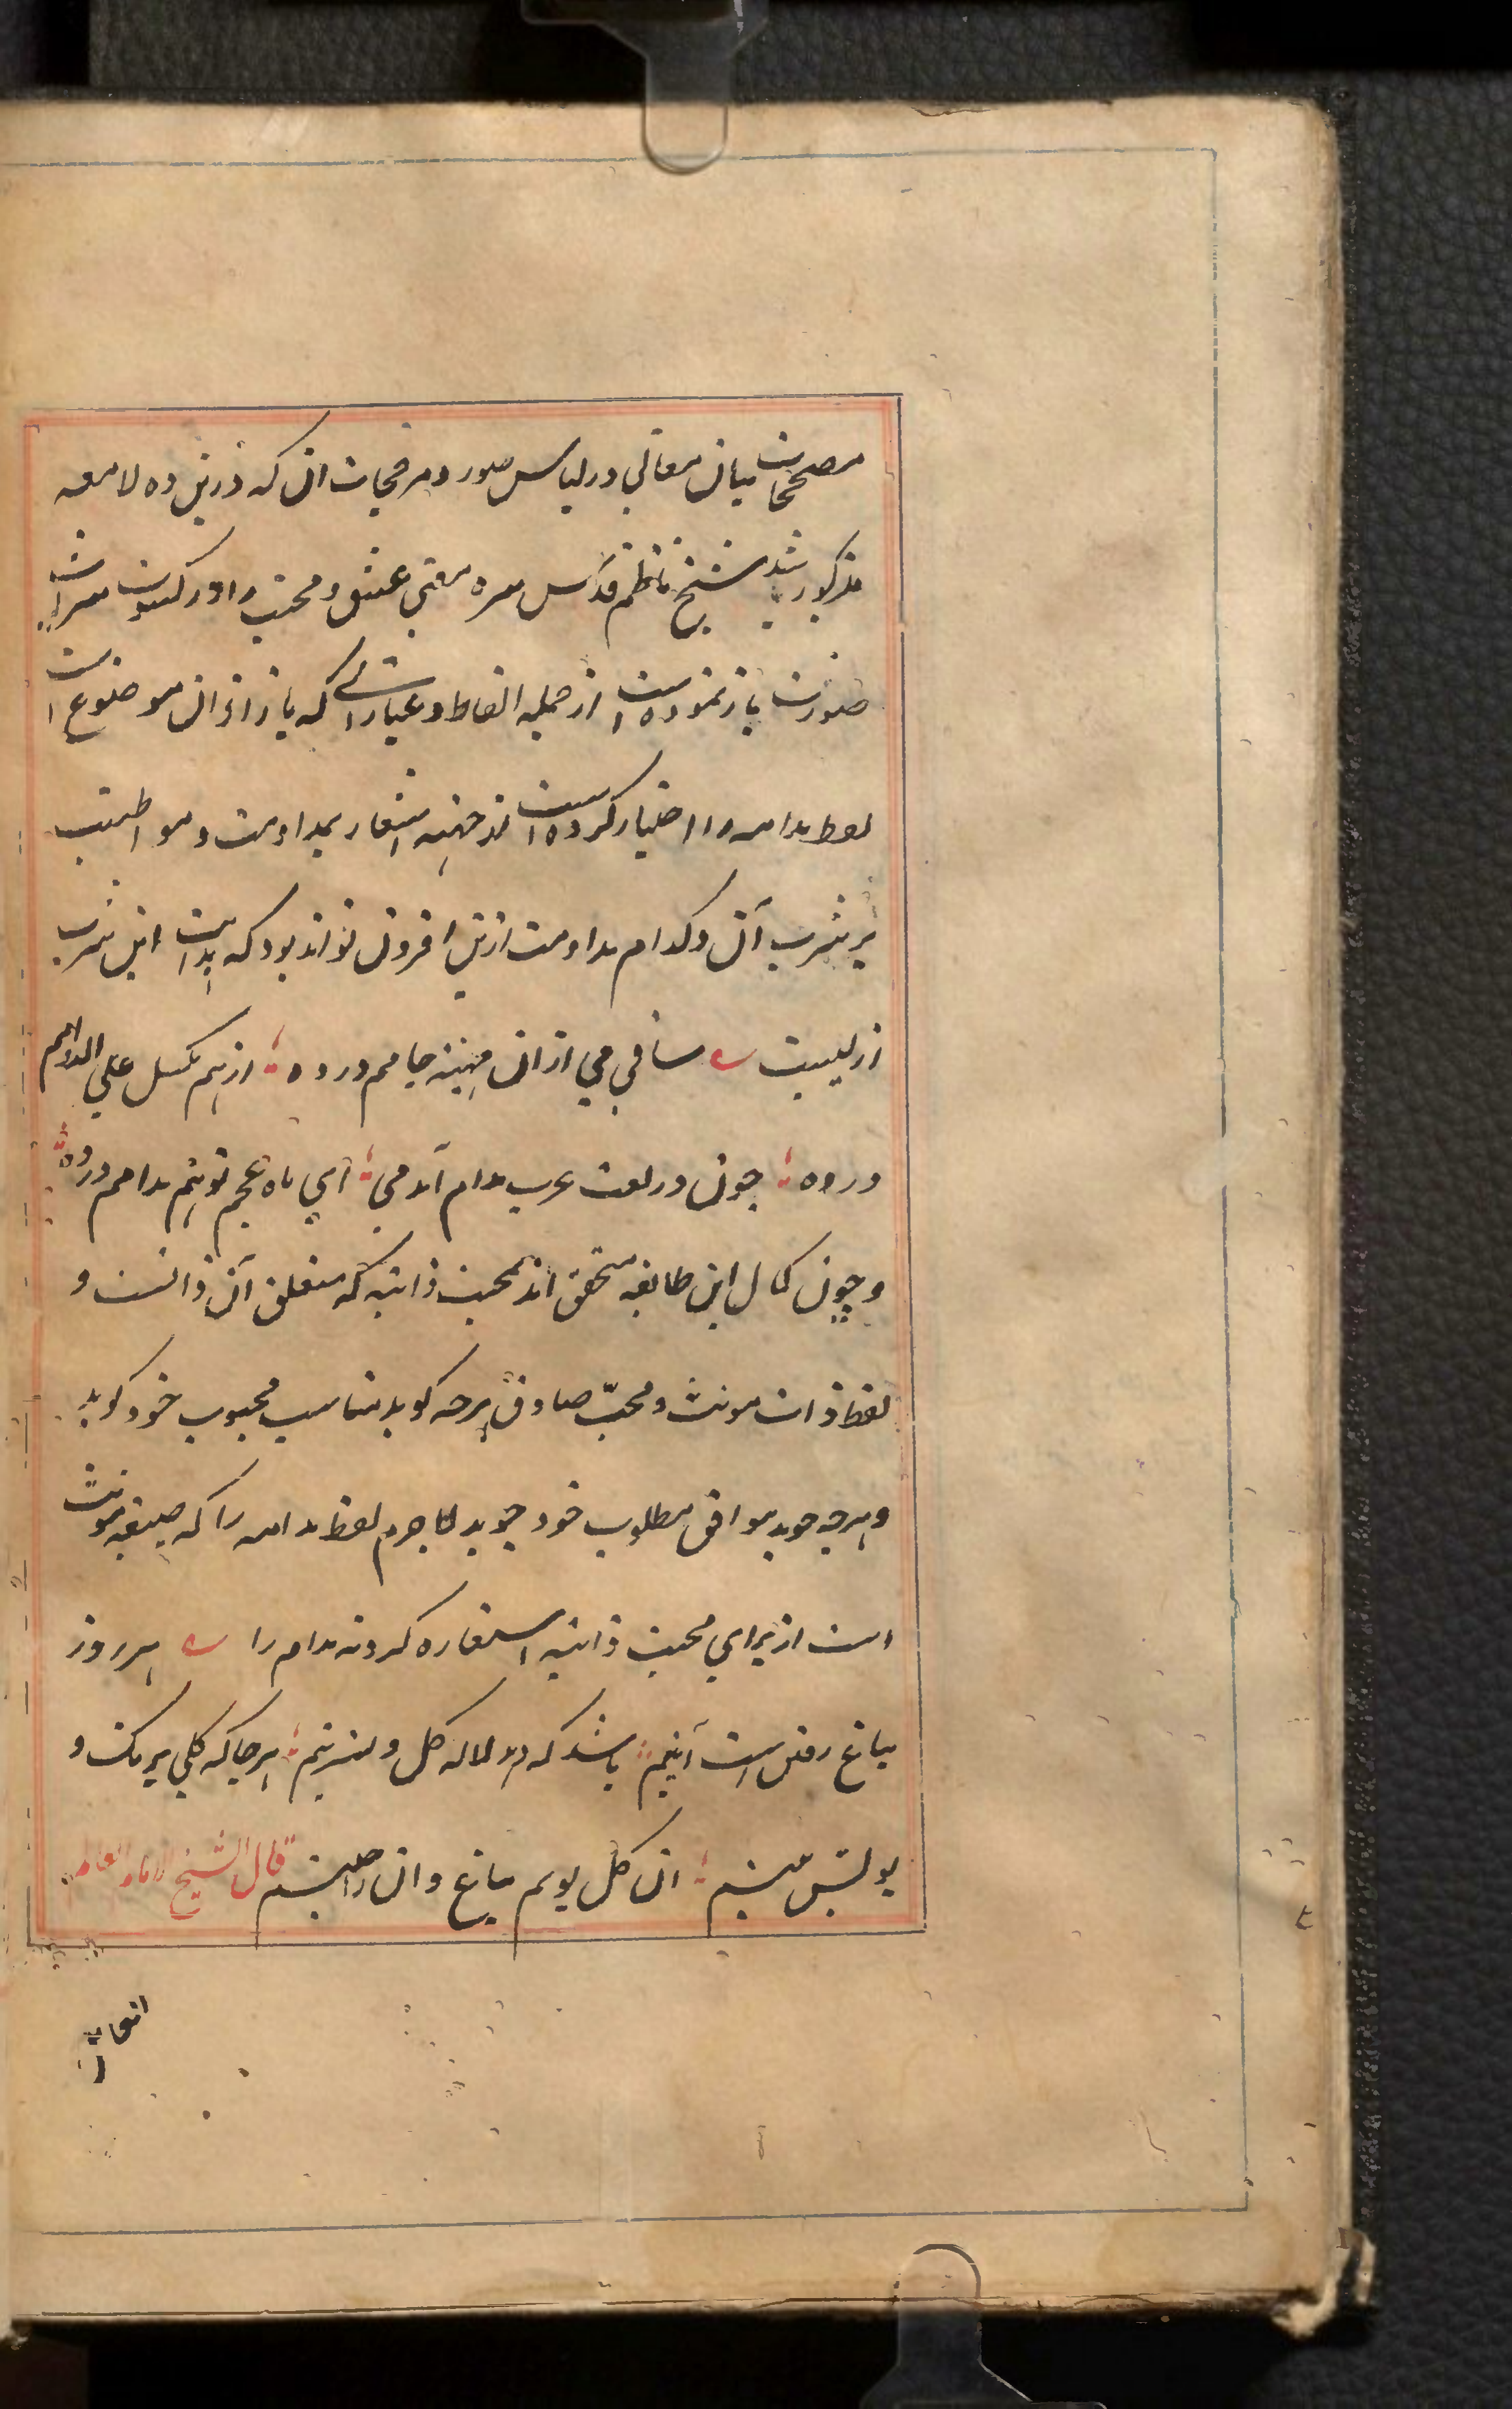 مصححات بیان معانی در لباس صور و مرجحات ان که درین ده لامعه
مذکور شد شیخ ناظم قدس سره معنی عشق و محبت را در کسوت شراب
صورت باز نموده است از جمله الفاظ و عباراتی که بازاء ان موضوع است
لفظ مدامه را اختیار کرده است از جهة اشعار بمداومت و مواظبت
بر شرب آن و کدام مداومت ازین افزون تواند بود که بدایت این شرب
ازلیست ساقی می ازان مهینه جامم درده از هم مگسل علی الدوامم
درده چون در لغت عرب مدام آمد می ای ماه عجم تو هم مدامم درده
و چون کمال این طایفه متحقق اند بمحبت ذاتیه که متعلق آن ذاتست و
لفظ ذات مونث و محب صادق هرچه کوید مناسب محبوب خود کوید
و هرچه جوید موافق مطلوب خود جوید لاجرم لفظ مدامه را که صیغه مونث
است از برای محبت ذاتیه استعاره کردند مدام را هر روز
بباغ رفتن است آیینم باشد که در لاله کل و نسرینم هرجا که کلی برنک و
بویش بینم ان کل بویم بباغ و ان را چینم قال الشیخ الامام العالم